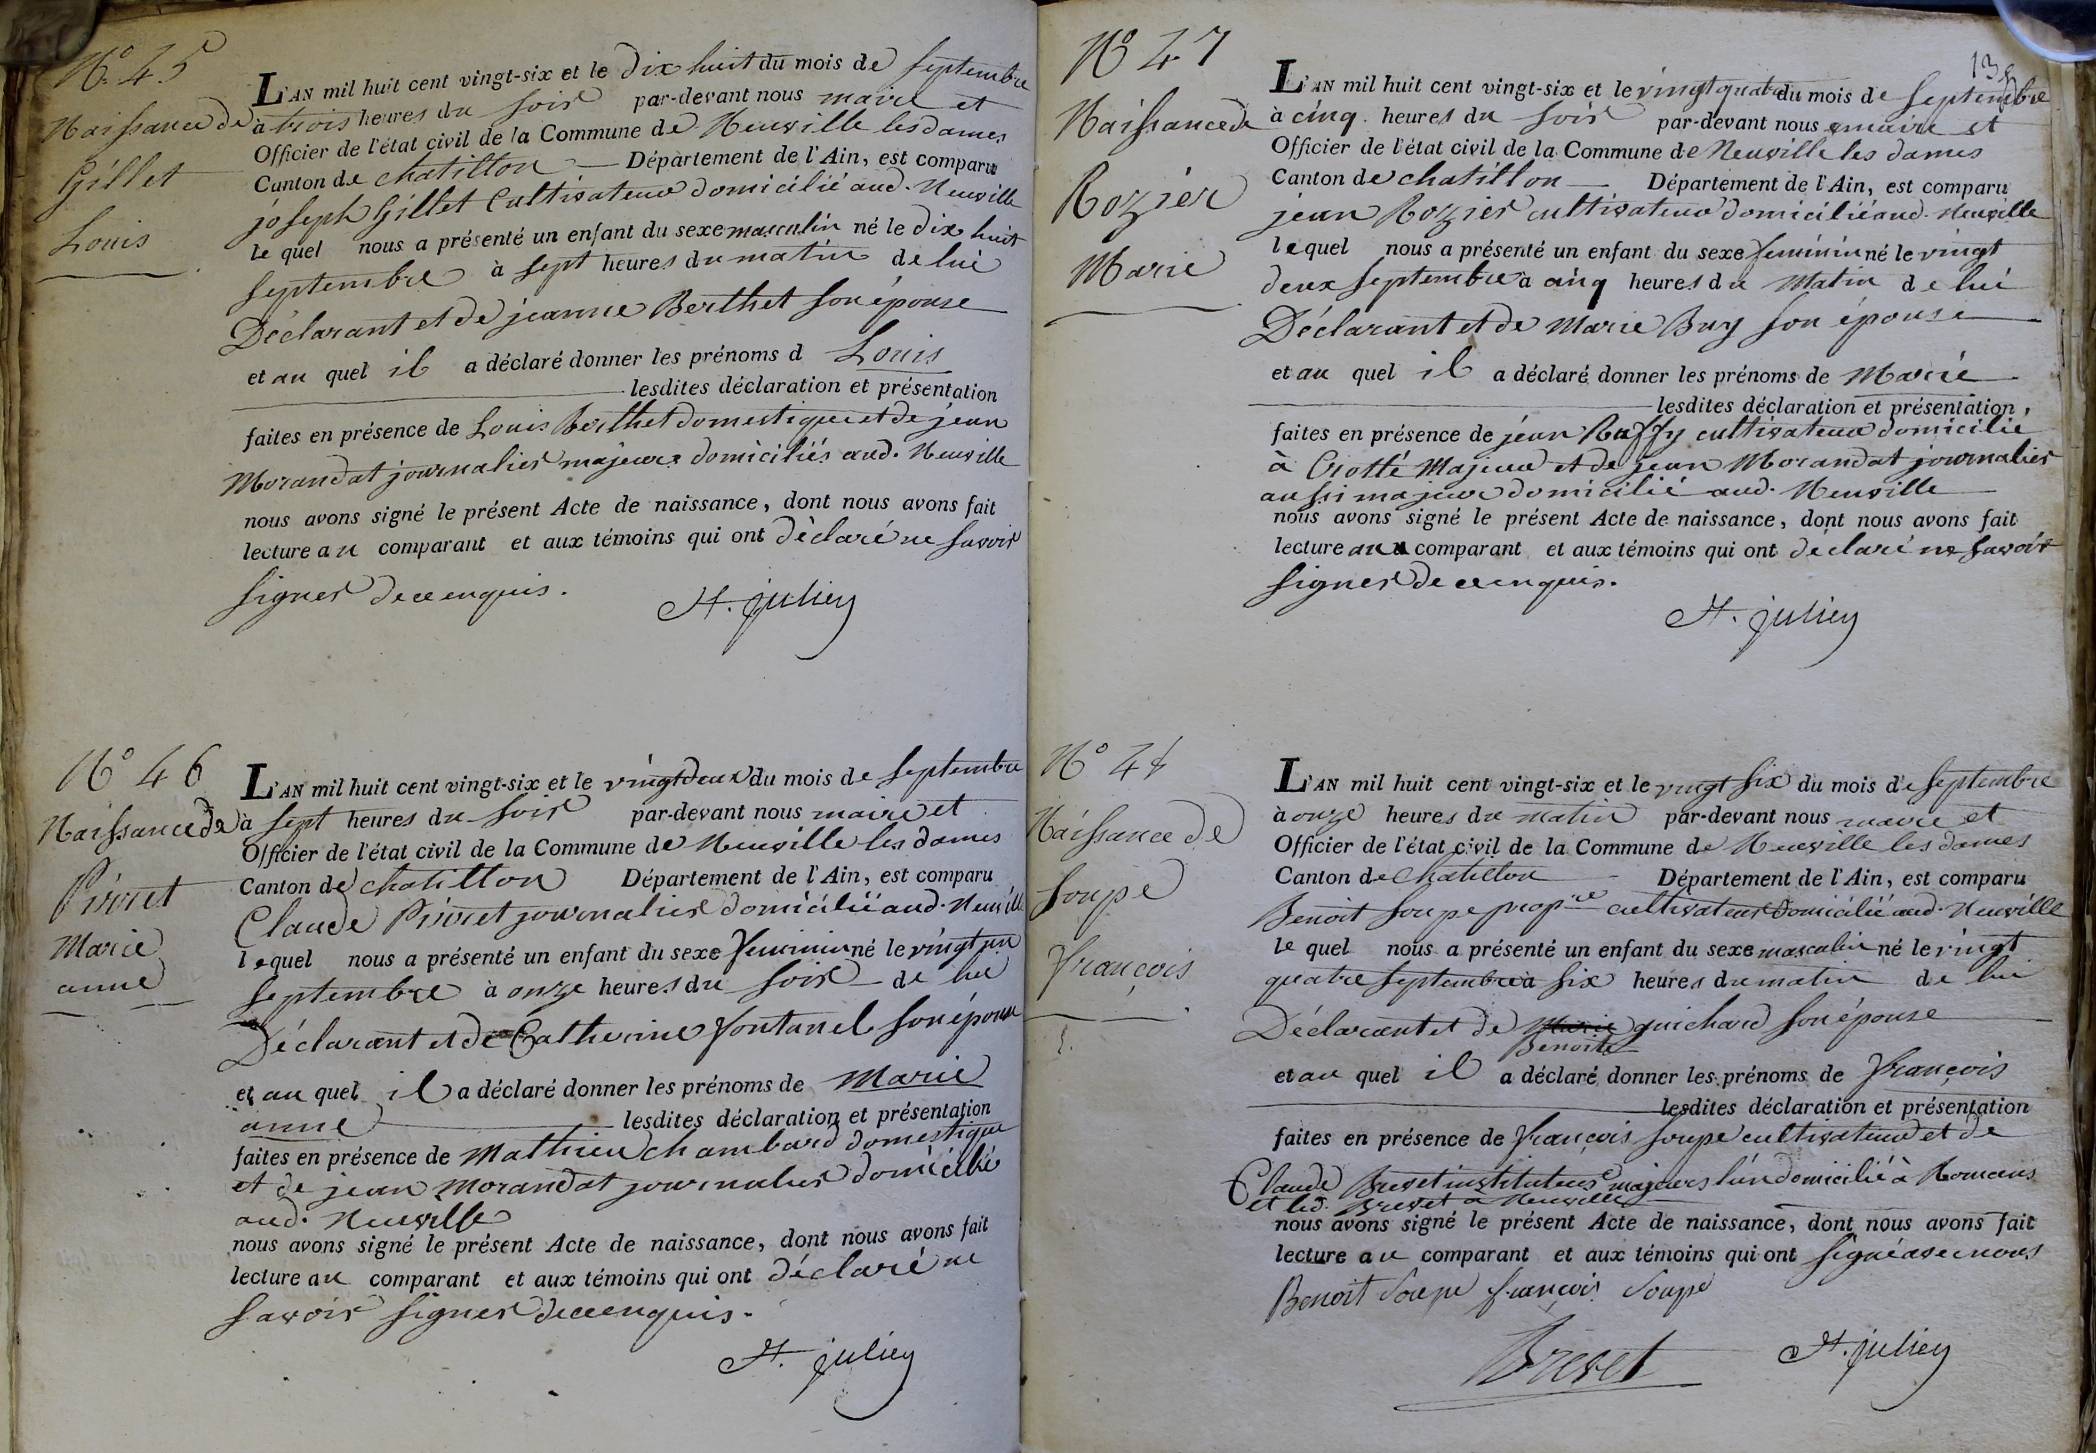 N.° 45
Naissance de
Gillet
Louis
L'AN mil huit cent vingt-six et le dix huit du mois de septembre
à trois heures du soir par-devant nous maire et
Officier de l'état civil de la Commune de Neuville les dames
Canton de chatillon Département de l'Ain, est comparu
joseph Gillet Cultivateur domicilié aud. Neuville
le quel nous a présenté un enfant du sexe masculin né le dix huit
septembre à sept heures du matin de lui
Déclarant et de jeanne Berthet son épouse
et au quel il a déclaré donner les prénoms d Louis
lesdites déclaration et présentation
faites en présence de Louis Berthet domestique et de jean
Morandat journalier majeurs domiciliés aud. Neuville
nous avons signé le présent Acte de naissance, dont nous avons fait
lecture au comparant et aux témoins qui ont déclaré ne savoir
signer de ce enquis.
St. julien
N° 46
Naissance de
Pivret
Marie
anne
L'AN mil huit cent vingt-six et le vingt deux du mois de septembre
à sept heures du soir par-devant nous maire et
Officier de l'état civil de la Commune de Neuville les dames
Canton de chatillon Département de l'Ain, est comparu
Claude Pivret journalier domicilié aud. Neuville
lequel nous a présenté un enfant du sexe feminin né le vingt un
septembre à onze heures du soir de lui
Déclarant et de Catherine fontanel son épouse
et au quel il a déclaré donner les prénoms de Marie
anne lesdites déclaration et présentation
faites en présence de Mathieu chambard domestique
et de jean Morandat journalier domicilié
aud. Neuville
nous avons signé le présent Acte de naissance, dont nous avons fait
lecture au comparant et aux témoins qui ont déclaré ne
savoir signer de ce enquis.
St. julien
13
N° 47
Naissance de
Rozier
Marie
L'AN mil huit cent vingt-six et le vingt quatre du mois de septembre
à cinq heures du soir par-devant nous maire et
Officier de l'état civil de la Commune de Neuville les dames
Canton de chatillon Département de l'Ain, est comparu
jean Rozier cultivateur domicilié aud. Neuville
lequel nous a présenté un enfant du sexe feminin né le vingt
deux septembre à cinq heures du Matin de lui
Déclarant et de Marie Buy son épouse
et au quel il a déclaré donner les prénoms de Marie
lesdites déclaration et présentation,
faites en présence de jean Ruffy cultivateur domicilié
à Crotté Majeur et de jean Morandat journalier
aussi majeur domicilié aud. Neuville
nous avons signé le présent Acte de naissance, dont nous avons fait
lecture au comparant et aux témoins qui ont déclaré ne savoir
signer de ce enquis.
St. julien
N° 48
Naissance de
Soupe
françois
L'AN mil huit cent vingt-six et le vingt six du mois de septembre
à onze heures du matin par-devant nous maire et
Officier de l'état civil de la Commune de Neuville les dames
Canton de Chatillon Département de l'Ain, est comparu
Benoit Soupe prop.re cultivateur domicilié aud. Neuville
le quel nous a présenté un enfant du sexe masculin né le vingt
quatre septembre à six heures du matin de lui
Déclarant et de Marie guichard son épouse
Benoite
et au quel il a déclaré donner les prénoms de françois
lesdites déclaration et présentation
faites en présence de françois Soupe cultivateur et de
Claude Brevet instituteur majeurs l'un domicilié à Romans
et led. Brevet à Neuville
nous avons signé le présent Acte de naissance, dont nous avons fait
lecture au comparant et aux témoins qui ont signé avec nous
Benoit Soupe françois Soupe
Brevet St. julien